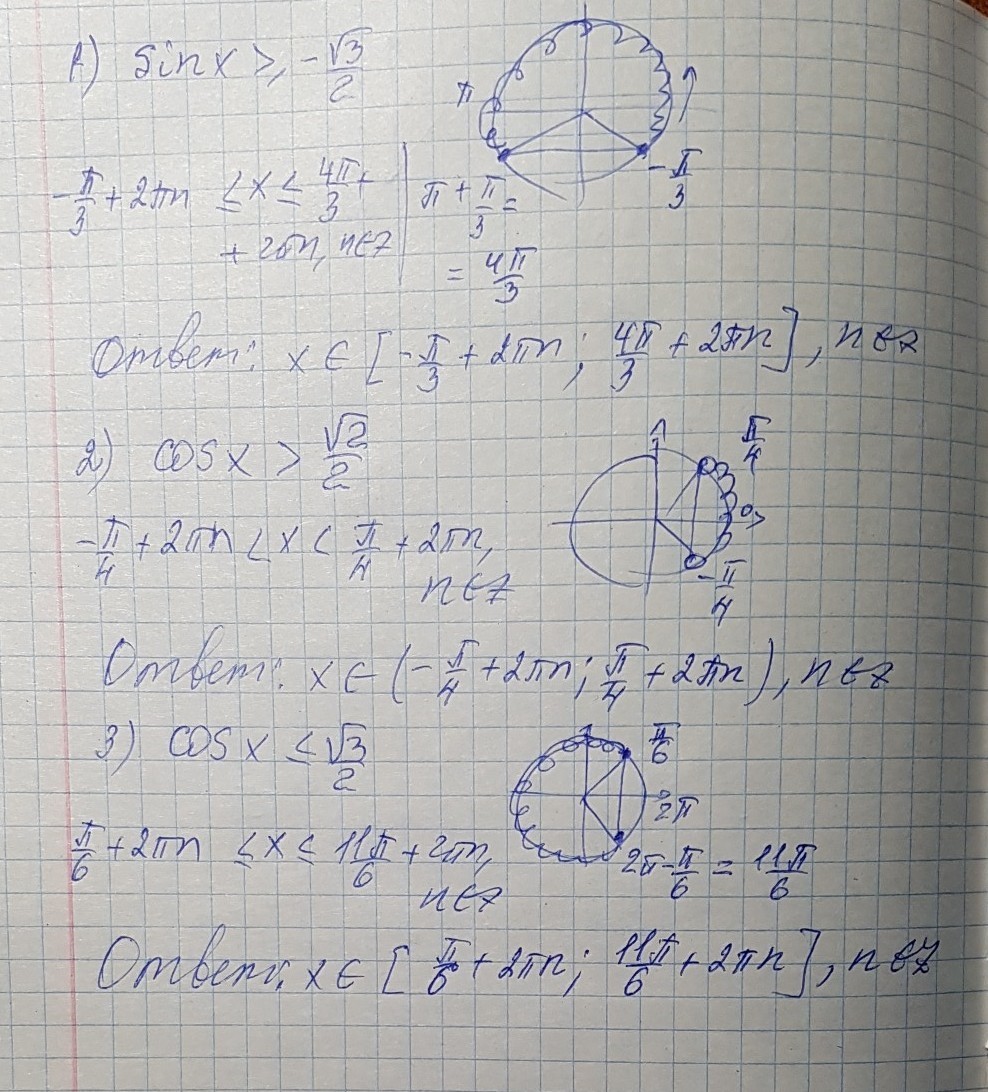 1) sin x ≥ -√3/2
π
-π/3
-π/3 + 2πn ≤ x ≤ 4π/3 +
+ 2πn, n∈z
π + π/3 =
= 4π/3
Ответ: x ∈ [-π/3 + 2πn; 4π/3 + 2πn], n∈z
2) cos x > √2/2
π/4
0
-π/4
-π/4 + 2πn < x < π/4 + 2πn,
n∈z
Ответ: x ∈ (-π/4 + 2πn; π/4 + 2πn), n∈z
3) cos x ≤ √3/2
π/6
2π
π/6 + 2πn ≤ x ≤ 11π/6 + 2πn,
n∈z
2π - π/6 = 11π/6
Ответ: x ∈ [π/6 + 2πn; 11π/6 + 2πn], n∈z